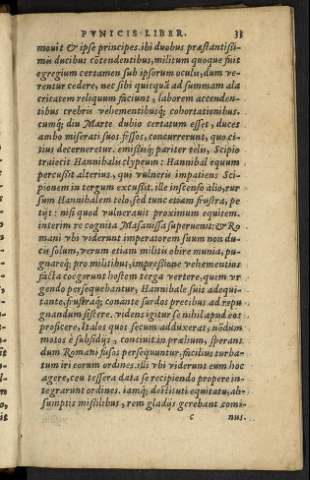 PVNICIS LIBER. 33
mouit & ipse principes. ibi duobus præstantissi-
mis ducibus cōtendentibus, militum quoque fuit
egregium certamen sub ipsorum oculis, dum ve-
rentur cedere, nec sibi quicquā ad summam ala
critatem reliquum faciunt, laborem accenden-
tibus crebris vehementibusq́; cohortationibus.
cumq́; diu Marte dubio certatum esset, duces
ambo miserati suos fessos, concurrerunt, quo ci-
tius decerneretur. emissisq́; pariter telis, Scipio
traiecit Hannibalis clypeum: Hannibal equum
percussit alterius, qui vulneris impatiens Sci-
pionem in tergum excussit. ille inscenso alio, rur
sum Hannibalem telo, sed tunc etiam frustra, pe
tijt: nisi quod vulnerauit proximum equitem.
interim re cognita Masanissa superuenit: & Ro
mani vbi viderunt imperatorem suum non du-
cis solum, verum etiam militis obire munia, pu-
gnareq́; pro militibus, impressione vehementius
facta coegerunt hostem terga vertere, quem vr
gendo persequebantur, Hannibale suis adequi-
tante, frustraq́; conante surdos precibus ad repu
gnandum sistere. videns igitur se nihil apud eos
proficere, Italos quos secum adduxerat, nōdum
motos è subsidijs, conciuit in prælium, sperans
dum Romani fusos persequuntur, facilius turba-
tum iri eorum ordines. illi vbi viderunt eum hoc
agere, ceu tessera data se recipiendo propere in-
tegrarunt ordines. iamq́; destituti equitatu, ab-
sumptis missilibus, rem gladijs gerebant comi-
c nus.